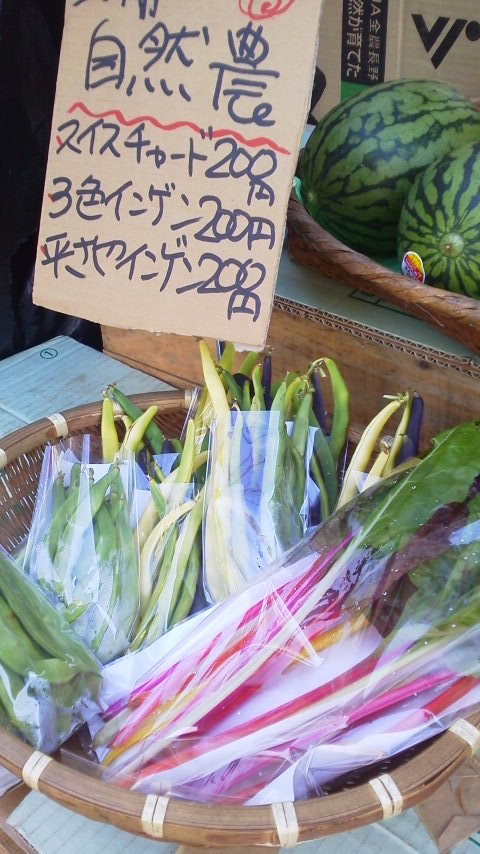 自然農
スイスチャード200円
3色インゲン200円
平さやインゲン200円
JA全農長野
然が育てた